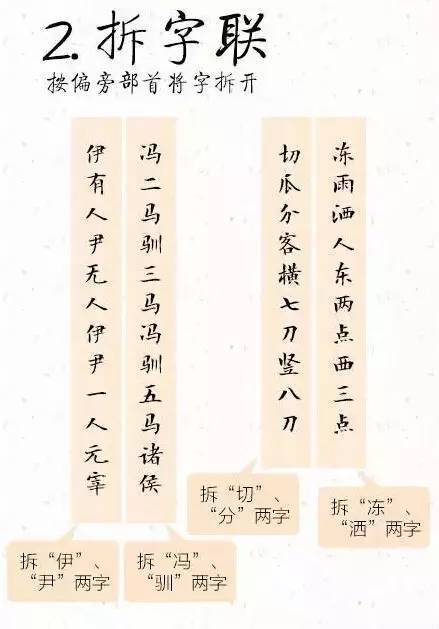 2. 拆字联
按偏旁部首将字拆开
冻雨洒人东两点西三点
切瓜分客横七刀竖八刀
冯二马驯三马冯驯五马诸侯
伊有人尹无人伊尹一人元宰
拆“冻”、
“洒”两字
拆“切”、
“分”两字
拆“冯”、
“驯”两字
拆“伊”、
“尹”两字